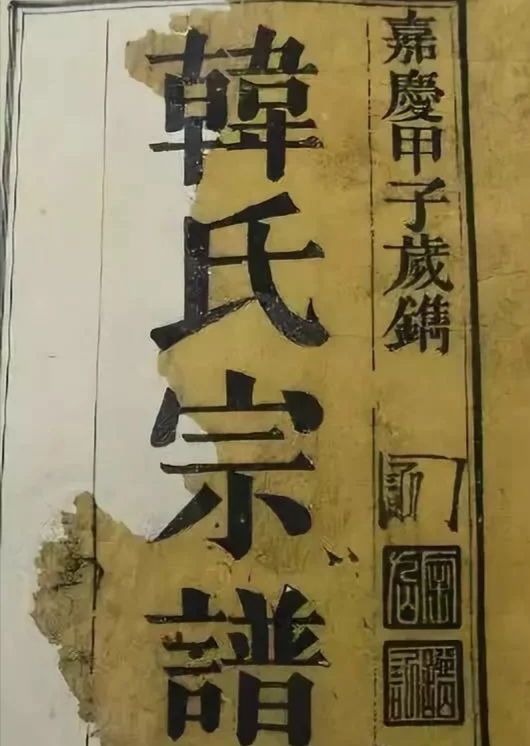 嘉慶甲子歲鐫
韓氏宗譜